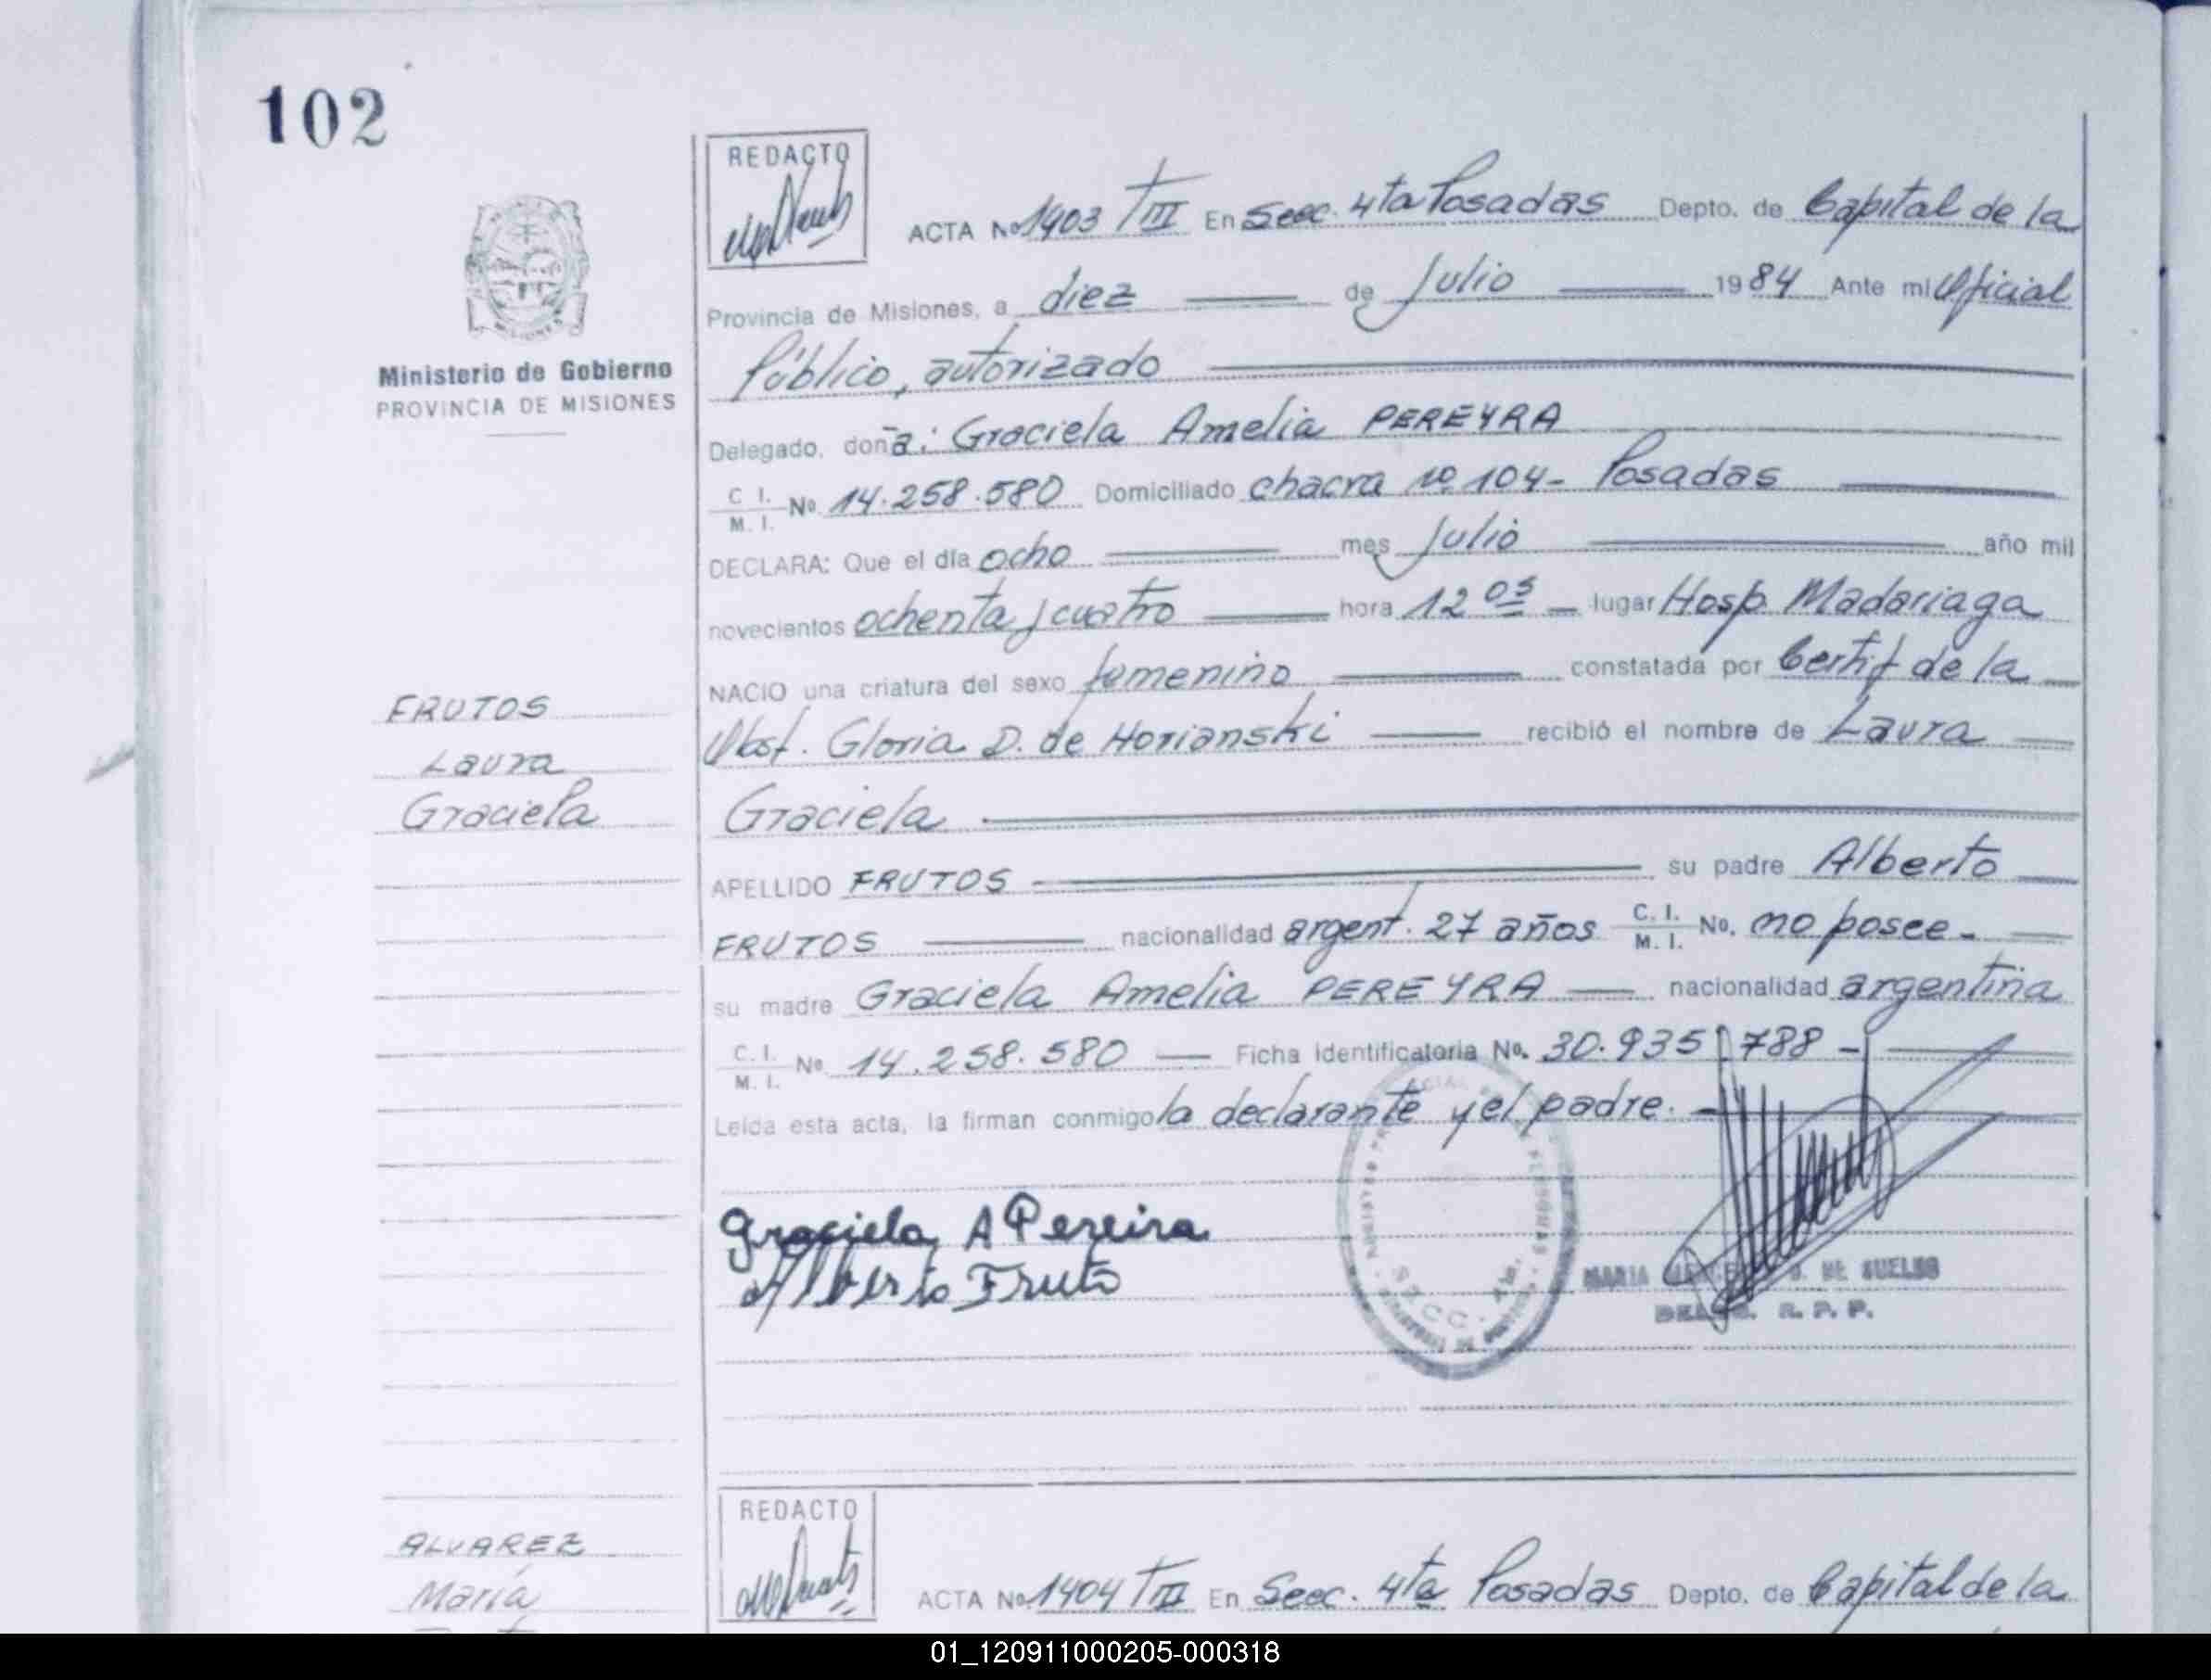 102
REDACTO
ACTA No 1403 TIII En Secc. 4ta Posadas Depto. de Capital de la
Provincia de Misiones, a diez de Julio 1984 Ante mi Oficial
Público, autorizado
Ministerio de Gobierno
PROVINCIA DE MISIONES
Delegado, doña: Graciela Amelia PEREYRA
C. I. / M. I. No 14.258.580 Domiciliado chacra no 104- Posadas
DECLARA: Que el día ocho mes Julio año mil
novecientos ochenta y cuatro hora 12 05 lugar Hosp. Madariaga
NACIO una criatura del sexo femenino constatada por Certif de la
Obst. Gloria D. de Horianski recibió el nombre de Laura
Graciela
FRUTOS
Laura
Graciela
APELLIDO FRUTOS su padre Alberto
FRUTOS nacionalidad argent. 27 años C. I. / M. I. No. no posee-
su madre Graciela Amelia PEREYRA nacionalidad argentina
C. I. / M. I. No 14.258.580 Ficha identificatoria No. 30.935.788
Leída esta acta, la firman conmigo la declarante y el padre.
Graciela A Pereira
Alberto Fruto
MARIA DE SUELDO
R. P. P.
SECC. 4ta.
REDACTO
ACTA No 1404 TIII En Secc. 4ta Posadas Depto. de Capital de la
ALVAREZ
María
01_120911000205-000318